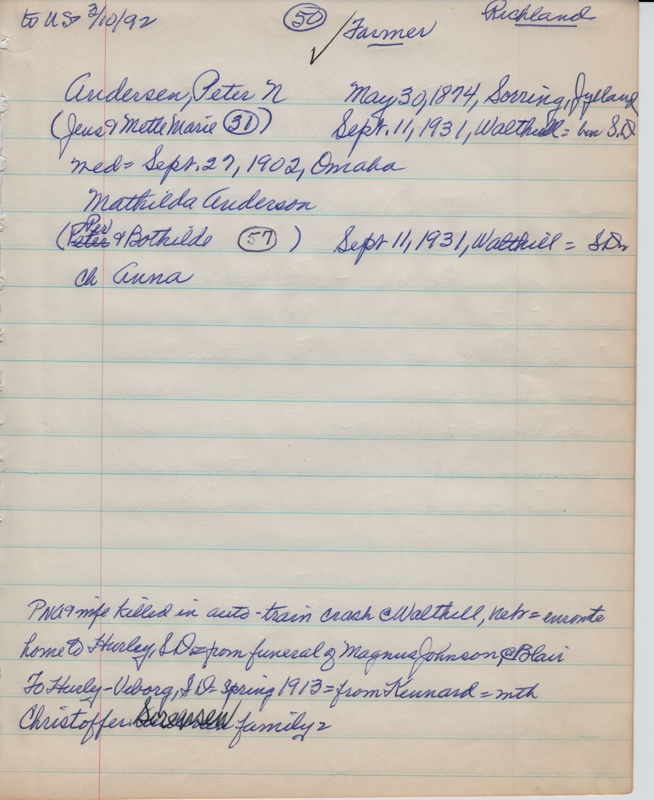 to US 3/10/92
50
Farmer
Richland
Andersen, Peter N May 30, 1874, Sorring, Jylland
(Jens & Mette Marie 31) Sept. 11, 1931, Walthill = bur S.D.
med = Sept. 27, 1902, Omaha
Mathilda Anderson
(Peter Per & Bothilde 57) Sept 11, 1931, Walthill = S.D.
ch Anna
PNA & wife killed in auto-train crash @ Walthill, Nebr = enroute
home to Hurley, S.D. = from funeral of Magnus Johnson @ Blair
To Hurley-Viborg, S.D. = Spring 1913 = from Kennard = with
Christoffer Sorensen family =